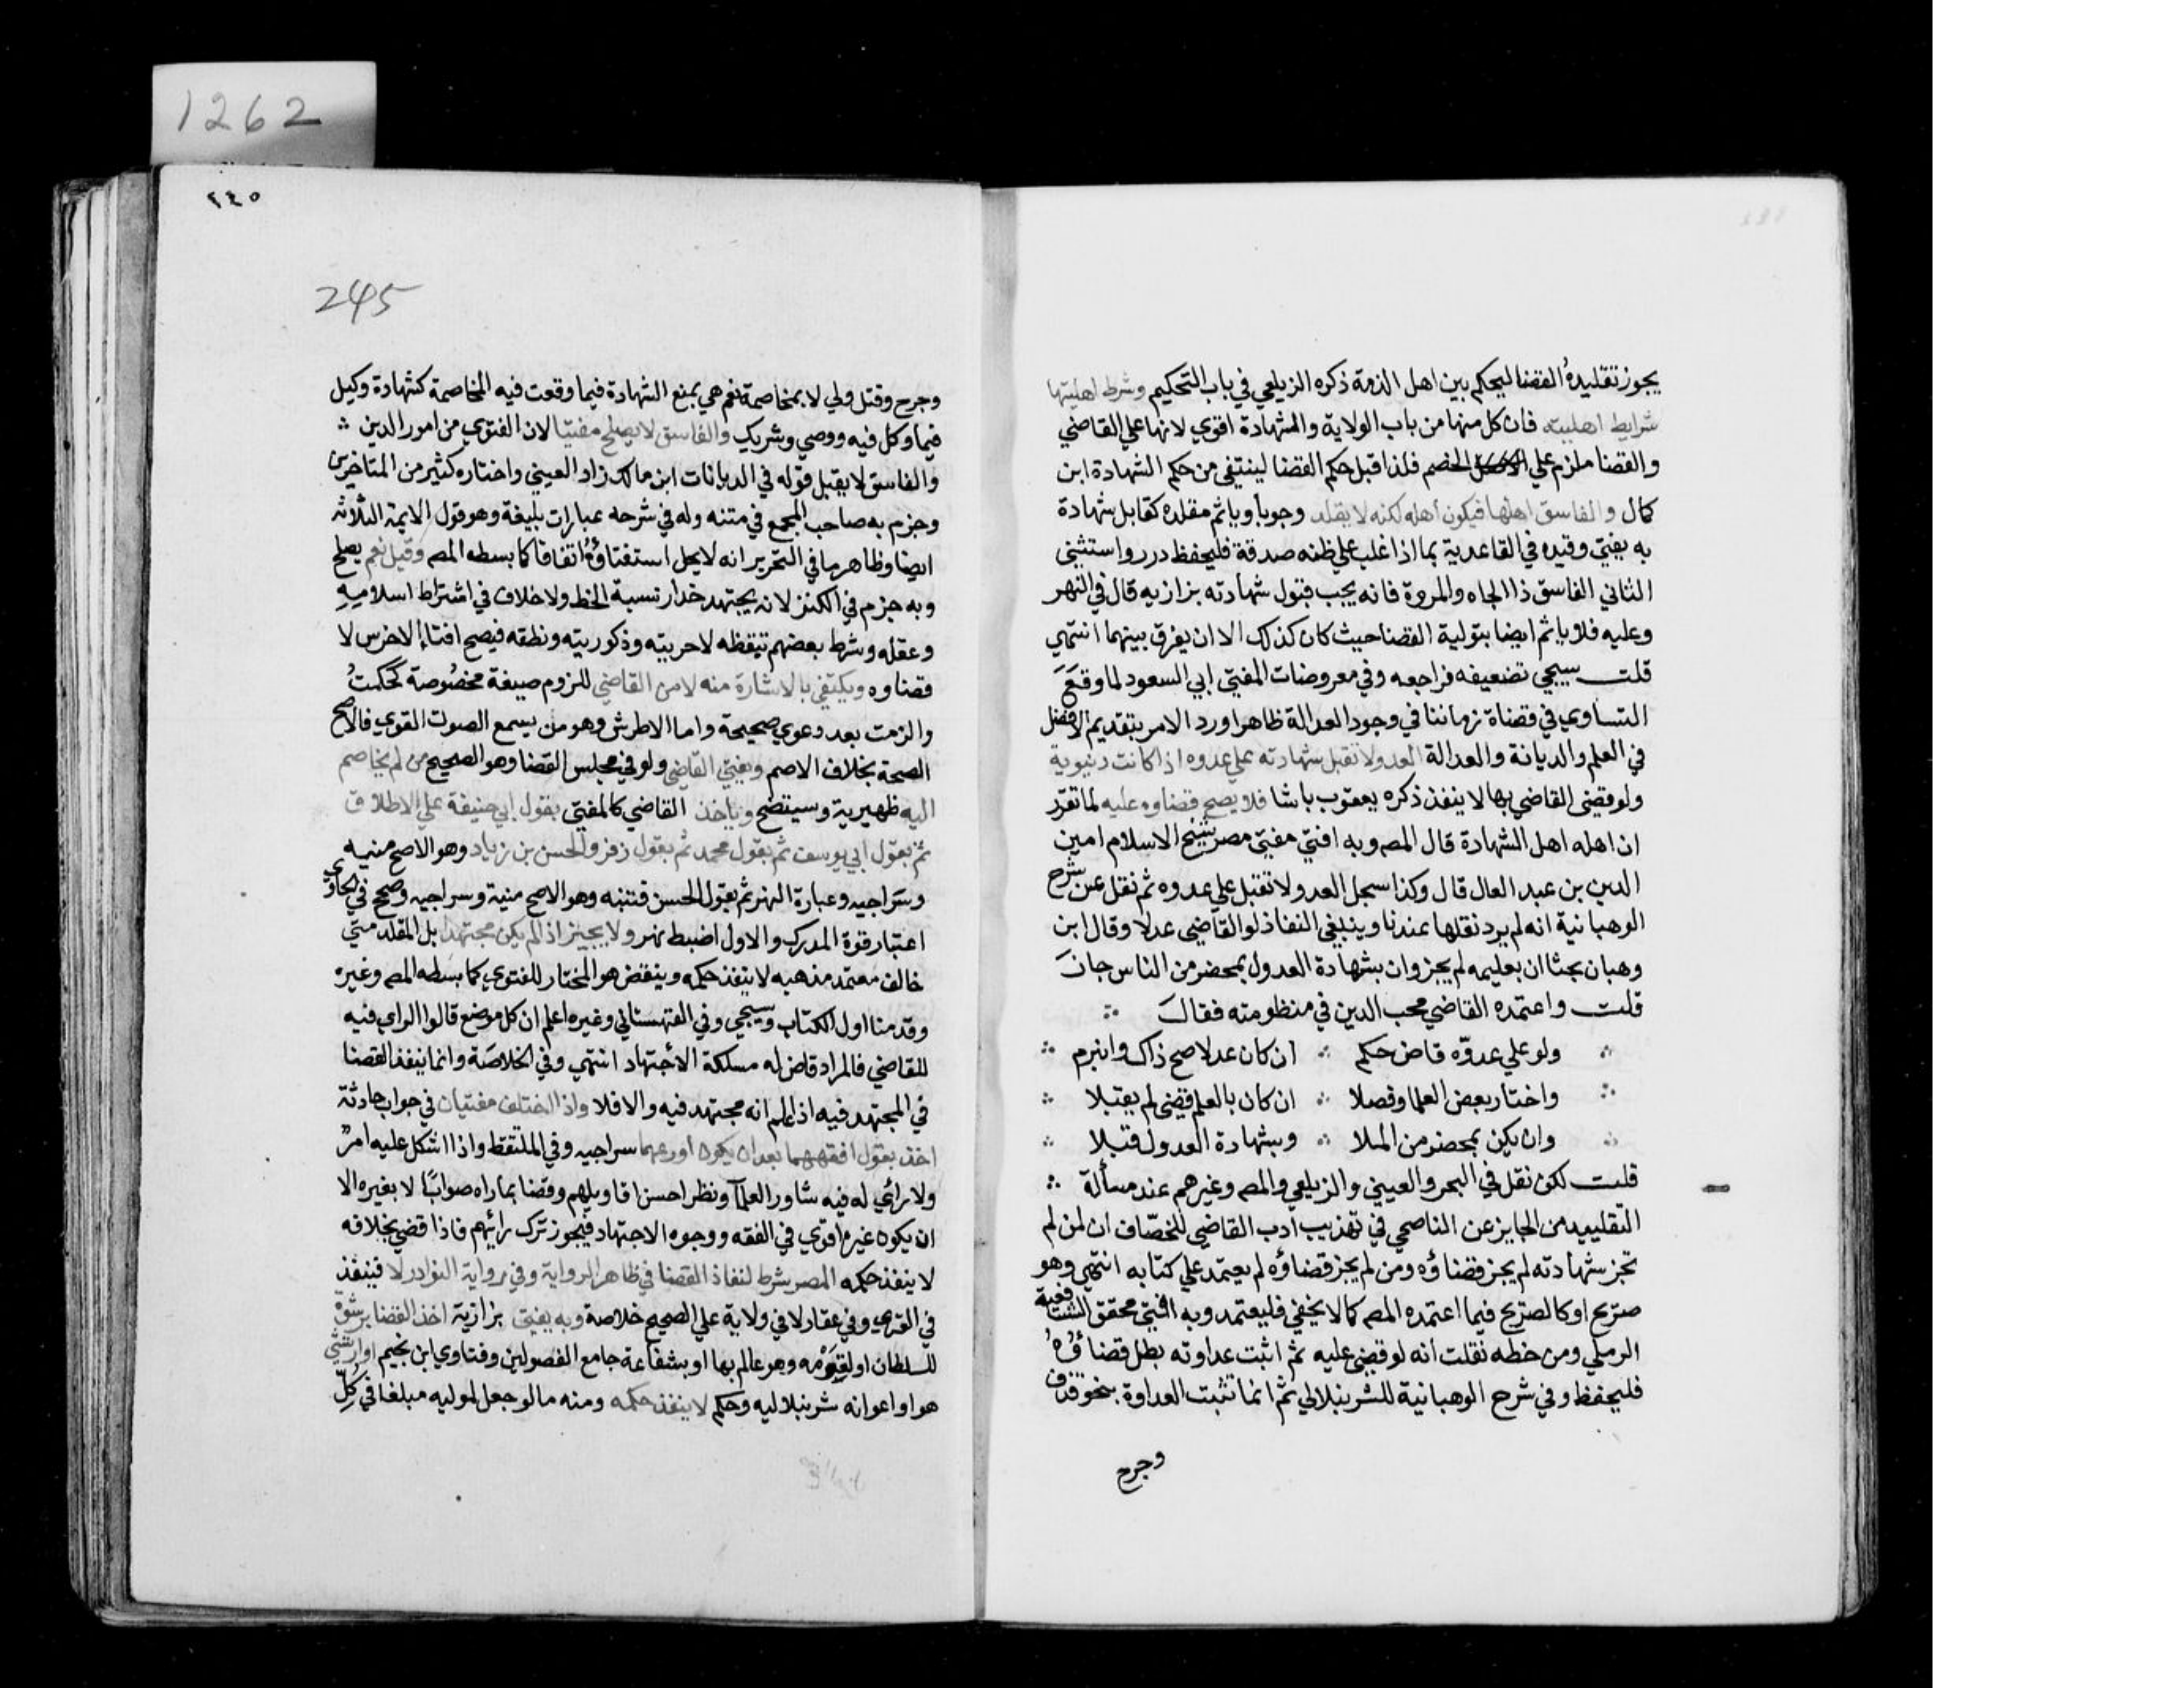 1262
٢٤٥
245
يجوز تقليده القضا ليحكم بين اهل الذمة ذكره الزيلعي في باب التحكيم وشرط اهليتها
شرايط اهليته فان كل منها من باب الولاية والشهادة اقوي لانها علي القاضي
والقضا ملزم علي الخصم فلذا قبل حكم القضا لينتفي من حكم الشهادة ابن
كمال والفاسق اهلها فيكون أهله لكنه لا يقلد وجوباً وياثم مقلده كقابل شهادة
به يفتي وقيده في القاعدية بما اذا غلب علي ظنه صدقة فليحفظ درر واستثني
الثاني الفاسق ذا الجاه والمروة فانه يجب قبول شهادته بزازيه قال في النهر
وعليه فلا ياثم ايضا بتولية القضا حيث كان كذلك الا ان يفرق بينهما انتهي
قلت سيجي تضعيفه فراجعه وفي معروضات المفتي ابي السعود لما وقع
التساوي في قضاة زماننا في وجود العدالة ظاهرا ورد الامر بتقديم الافضل
في العلم والديانة والعدالة العدو لا تقبل شهادته علي عدوه اذا كانت دنيوية
ولو قضي القاضي بها لا ينفذ ذكره يعقوب باشا فلا يصح قضاوه عليه لما تقرر
ان اهله اهل الشهادة قال المص وبه افتي مفتي مصر شيخ الاسلام امين
الدين بن عبد العال قال وكذا سجل العدو لا تقبل علي عدوه ثم نقل عن شرح
الوهبانية انه لم يرد نقلها عندنا وينبغي النفاذ لو القاضي عدلا وقال ابن
وهبان بحثا ان بعليمه لم يجز وان بشهادة العدول بمحضر من الناس جاز
قلت واعتمده القاضي محب الدين في منظومته فقال
ولو علي عدوّه قاض حكم ∴ ان كان عدلا صح ذاك وانبرم
واختار بعض العلما وفصلا ∴ ان كان بالعلم قضي لم يقبلا
وان يكن بمحضر من الملا ∴ وبشهادة العدول قبلا
قلت لكن نقل في البحر والعيني والزيلعي والمص وغيرهم عند مسألة
التقليد من الجايز عن الناصحي في تهذيب أدب القاضي للخصّاف ان لمن لم
تجز شهادته لم يجز قضاؤه ومن لم يجز قضاؤه لم يعتمد علي كتابه انتهي وهو
صريح او كالصريح فيما اعتمده المص كما لا يخفي فليعتمد وبه افتي محقق الشافعية
الرملي ومن خطه نقلت أنه لو قضي عليه ثم اثبت عداوته بطل قضاؤه
فليحفظ وفي شرح الوهبانية للشرنبلالي ثم انما تثبت العداوة بنحو قذف
وجرح
وجرح وقتل ولي لا بمخاصمة نعم هي بمنع الشهادة فيما وقعت فيه المخاصمة كشهادة وكيل
فيما وكل فيه ووصي وشريك والفاسق لا يصلح مفتيا لان الفتوي من امور الدين
والفاسق لا يقبل قوله في الديانات ابن مالك زاد العيني واختاره كثير من المتاخرين
وجزم به صاحب المجمع في متنه وله في شرحه عبارات بليغة وهو قول الايمة الثلاثه
ايضا وظاهر ما في التحرير انه لا يحل استفتاؤه اتفاقا كما بسطه المص وقيل نعم يصلح
وبه جزم في الكنز لانه يجتهد حذار نسبة الخطا ولا خلاف في اشتراط اسلاميه
وعقله وشرط بعضهم تيقظه لا حريته وذكوريته ونطقه فيصح افتاء الاخرس لا
قضاوه ويكتفي بالاشارة منه لا من القاضي للزوم صيغة مخصُوصة كحكمتُ
والزمت بعد دعوي صحيحة واما الاطرش وهو من يسمع الصوت القوي فالاصح
الصحة بخلاف الاصم ويفتي القاضي ولو في مجلس القضا وهو الصحيح من لم يخاصم
اليه ظهيرية وسيتضح وياخذ القاضي كالمفتي بقول ابي حنيفة علي الاطلاق
ثم بقول ابي يوسف ثم بقول محمد ثم بقول زفر والحسن بن زياد وهو الاصح منيه
وسراجيه وعبارة النهر ثم بقول الحسن فتنبه وهو الاصح منية وسراجيه وصحح في الحاوي
اعتبار قوة المدرك والاول اضبط نهر ولا يجيز اذا لم يكن مجتهدا بل المقلد متي
خالف معتمد مذهبه لا ينفذ حكمه وينقض هو المختار للفتوي كما بسطه المص وغيره
وقدمنا اول الكتاب وسيجي وفي القهستاني وغيره اعلم ان كل موضع قالوا الراي فيه
للقاضي فالمراد قاض له مسلكة الأجتهاد انتهي وفي الخلاصَة وانما ينفذ القضا
في المجتهد فيه اذا علم انه مجتهد فيه والا فلا واذا اختلف مفتيان في جواب حادثة
اخذ بقول افقههما بعد ان يكون اورعهما سراجيه وفي الملتقط واذا اشكل عليه امر
ولا رائي له فيه شاور العلما ونظر احسن اقاويلهم وقضا بما راه صوابًا لا بغيره الا
ان يكون غيره اقوي في الفقه ووجوه الاجتهاد فيجوز ترك رائيهم فاذا قضي بخلافه
لا ينفذ حكمه المصر شرط لنفاذ القضا في ظاهر الرواية وفي رواية النوادر لا فينفذ
في القري وفي عقار لا في ولاية علي الصحيح خلاصة وبه يفتي بزازية اخذ القضا برشوة
للسلطان او لقومه وهو عالم بها او بشفاعة جامع الفصولين وفتاوي ابن نجيم او ارتشي
هو او اعوانه شرنبلاليه وحكم لا ينفذ حكمه ومنه ما لو جعل لموليه مبلغا في كلّ